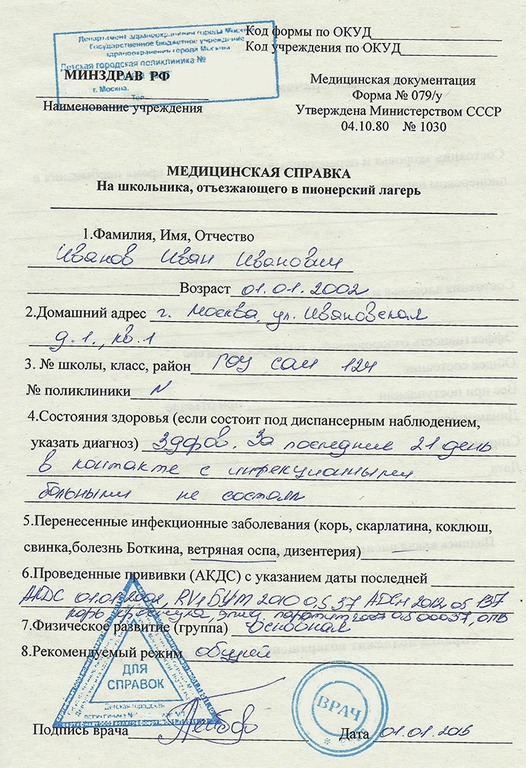 Департамент здравоохранения города Москвы
Государственное бюджетное учреждение
здравоохранения города Москвы
Детская городская поликлиника №
г. Москва,
Тел.
Код формы по ОКУД
Код учреждения по ОКУД
МИНЗДРАВ РФ
Наименование учреждения
Медицинская документация
Форма № 079/у
Утверждена Министерством СССР
04.10.80 № 1030
МЕДИЦИНСКАЯ СПРАВКА
На школьника, отъезжающего в пионерский лагерь
1.Фамилия, Имя, Отчество
Иванов Иван Иванович
Возраст 01.01.2002
2.Домашний адрес г. Москва, ул. Ивановская
д.1., кв.1
3. № школы, класс, район ГОУ СОШ 124
№ поликлиники N
4.Состояния здоровья (если состоит под диспансерным наблюдением,
указать диагноз) Здоров. За последние 21 день
в контакте с инфекционными
больными не состоял
5.Перенесенные инфекционные заболевания (корь, скарлатина, коклюш,
свинка,болезнь Боткина, ветряная оспа, дизентерия)
6.Проведенные прививки (АКДС) с указанием даты последней
АКДС
корь, краснуха, паротит
7.Физическое развитие (группа) Основная
8.Рекомендуемый режим общий
ДЛЯ
СПРАВОК
ВРАЧ
Подпись врача
Дата 01.01.2016